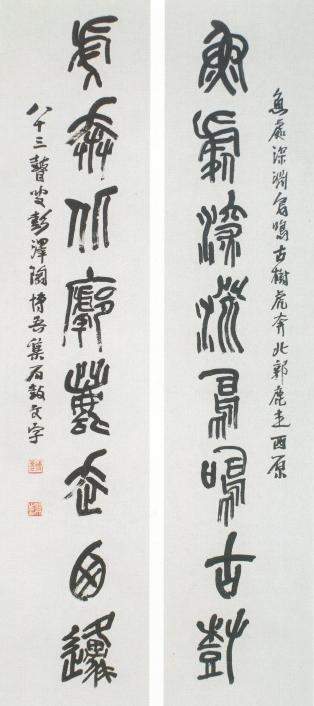 魚處深淵鳥鳴古樹虎奔北郭鹿走西原
魚處深淵鳥鳴古樹
虎奔北郭鹿走西原
八十三聾叟彭澤陶博吾集石鼓文字